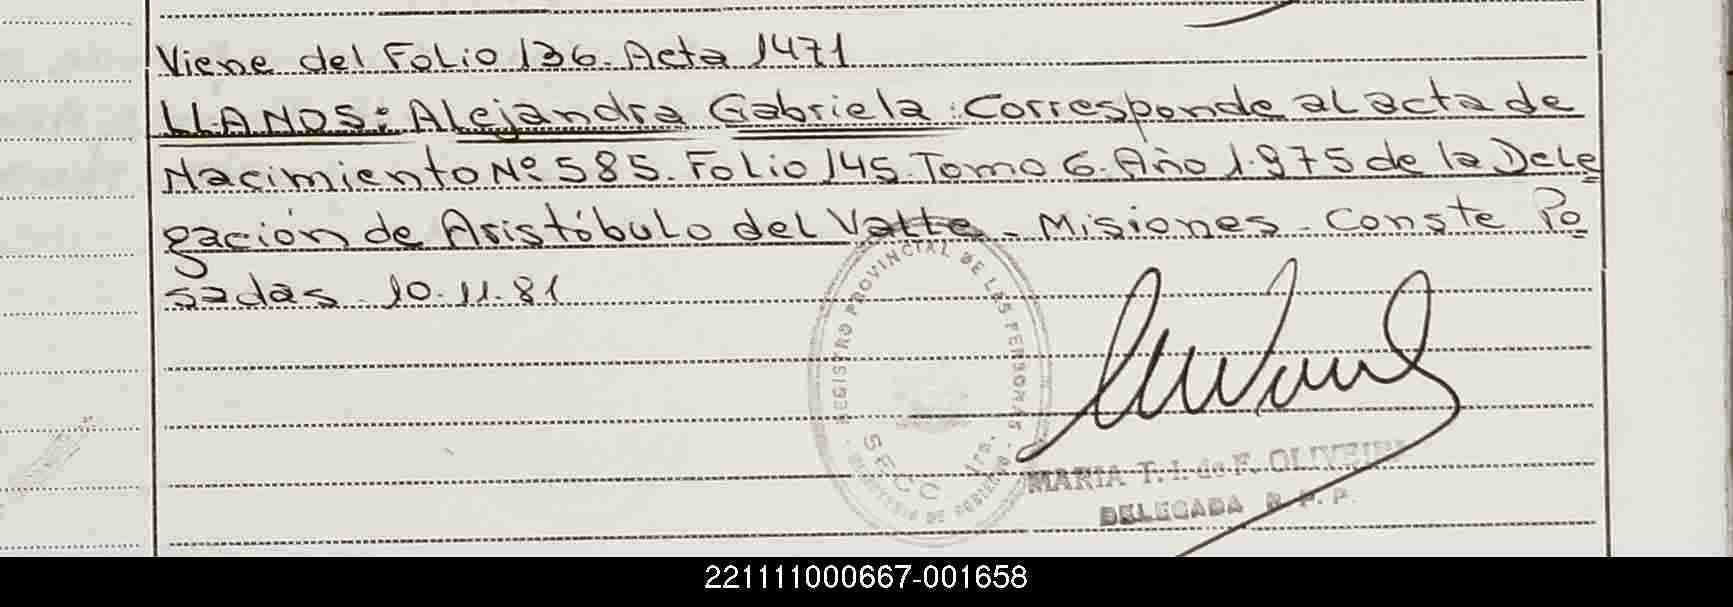 Viene del Folio 136. Acta 1471
LLANOS: Alejandra Gabriela. Corresponde al acta de
Nacimiento Nº 585. Folio 145. Tomo 6. Año 1.975 de la Dele
gación de Aristóbulo del Valle - Misiones - Conste Po
sadas 10.11.81
REGISTRO PROVINCIAL DE LAS PERSONAS
DE GOBIERNO
MARIA T. I. de F. OLIVEIRA
DELEGADA R. P. P.
221111000667-001658